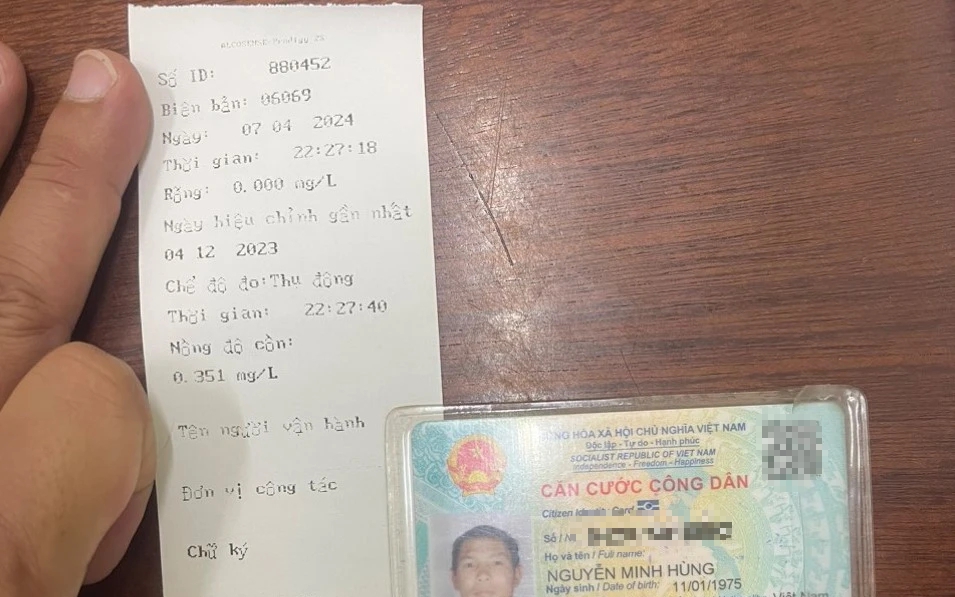 Số ID: 880452
Biên bản: 06069
Ngày: 07 04 2024
Thời gian: 22:27:18
Rỗng: 0.000 mg/L
Ngày hiệu chỉnh gần nhất
04 12 2023
Chế độ đo:Thụ động
Thời gian: 22:27:40
Nồng độ cồn:
0.351 mg/L
Tên người vận hành
Đơn vị công tác
Chữ ký
CỘNG HÒA XÃ HỘI CHỦ NGHĨA VIỆT NAM
Độc lập - Tự do - Hạnh phúc
SOCIALIST REPUBLIC OF VIET NAM
Independence - Freedom - Happiness
CĂN CƯỚC CÔNG DÂN
Citizen Card
Số /
Họ và tên / Full name:
NGUYỄN MINH HÙNG
Ngày sinh / Date of birth: 11/01/1975
Việt Nam